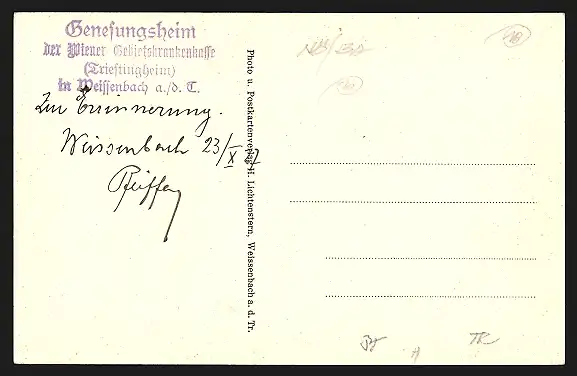 Genesungsheim
der Wiener Gebietskrankenkasse
(Triestingheim)
in Weissenbach a./d. T.
Zur Erinnerung.
Weissenbach 23/X 37
Pfeiffer
Photo u. Postkartenverlag H. Lichtenstern, Weissenbach a. d. Tr.